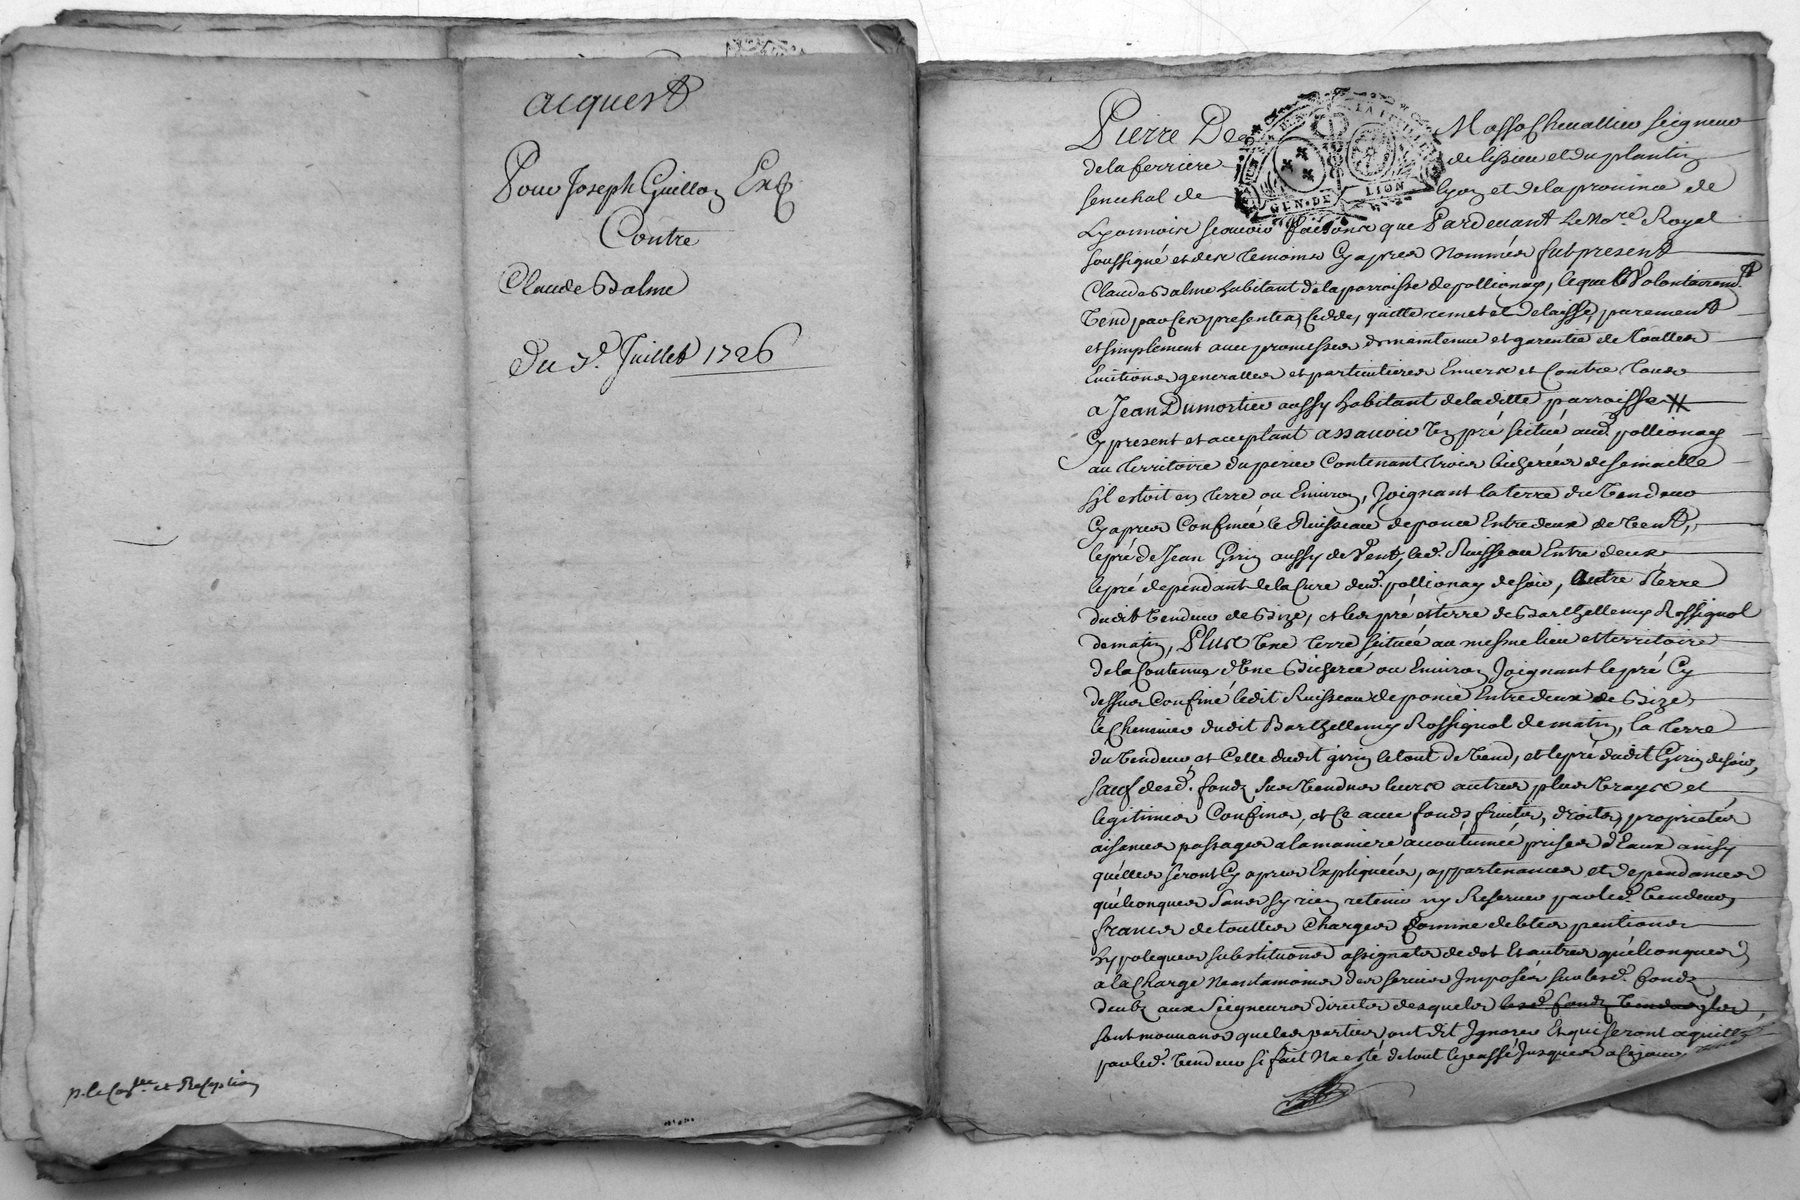 acquest
Pour Joseph Guillon
Contre
Claude Balme
Du 7e. Juillet 1726
p. le et Reception
Pierre De Masso Chevallier Seigneur
de la ferriere de lissieu et du plantin
senechal de Lyon et de la province de
GEN. DE LION
Lyonnois scavoir faisons que Pardevant Le No.re Royal
soussigné et des temoins Cy apres Nommés fut present
Claude Balme habitant de la parroisse de pollionay, lequel Volontairemt.
Vend par ses presentes, cedde, quitte remet et delaisse, purement
et simplement avec promesses de maintenue et garentie de touttes
Evitions generalles et particulieres Envers et Contre tous
a Jean Dumortier aussy habitant de la ditte parroisse
Cy present et acceptant assavoir Un pré scitué aud. pollionay
au territoire du perier Contenant trois bicherées de semaille
sy estoit en terre ou Environ, Joignant la terre du Vendeur
Cy apres Confinée le Ruisseau de ponce Entredeux de Vent,
le pré de Jean Girin aussy de Vent, led. Ruisseau Entre deux
le pré dependant de la Cure dud. pollionay de soir, autre terre
dudit Vendeur de Bize, et les pré et terre de Barthellemy Rossignol
de matin, Plus Une terre scituée au mesme lieu et territoire
de la Contenue d'Une Bicherée ou Environ Joignant le pré Cy
dessus Confiné ledit Ruisseau de ponce Entredeux de Bize
le Chenevier dudit Barthellemy Rossignol de matin, la terre
du Vendeur et Celle dudit girin le tout de Vend, et le pré dudit Girin de soir,
sauf desd. fondz sus Vendus leurs autres plus Vrays et
legitimes Confins, et Ce avec fonds, fruits, droits, proprietés
aisances passages a la maniere accoutumée prises d'Eaux ainsy
quelles seront Cy apres Expliquées, appartenances et dependances
quelconques Sans sy rien retenir ny Reserver par led. Vendeur,
francs de touttes Charges Comme debtes pentions
hypoteques substitutions assignats de dot Et autres quelconques,
a la Charge Neantmoins des servis Imposés sur lesd. fondz
deubz aux Seigneurs directes desquels lesd. fondz Vendus
sont mouvans que les parties ont dit Ignorer Et qui seront aquittés
par led. Vendeur si fait Na esté de tout le passé Jusques a Ce jour